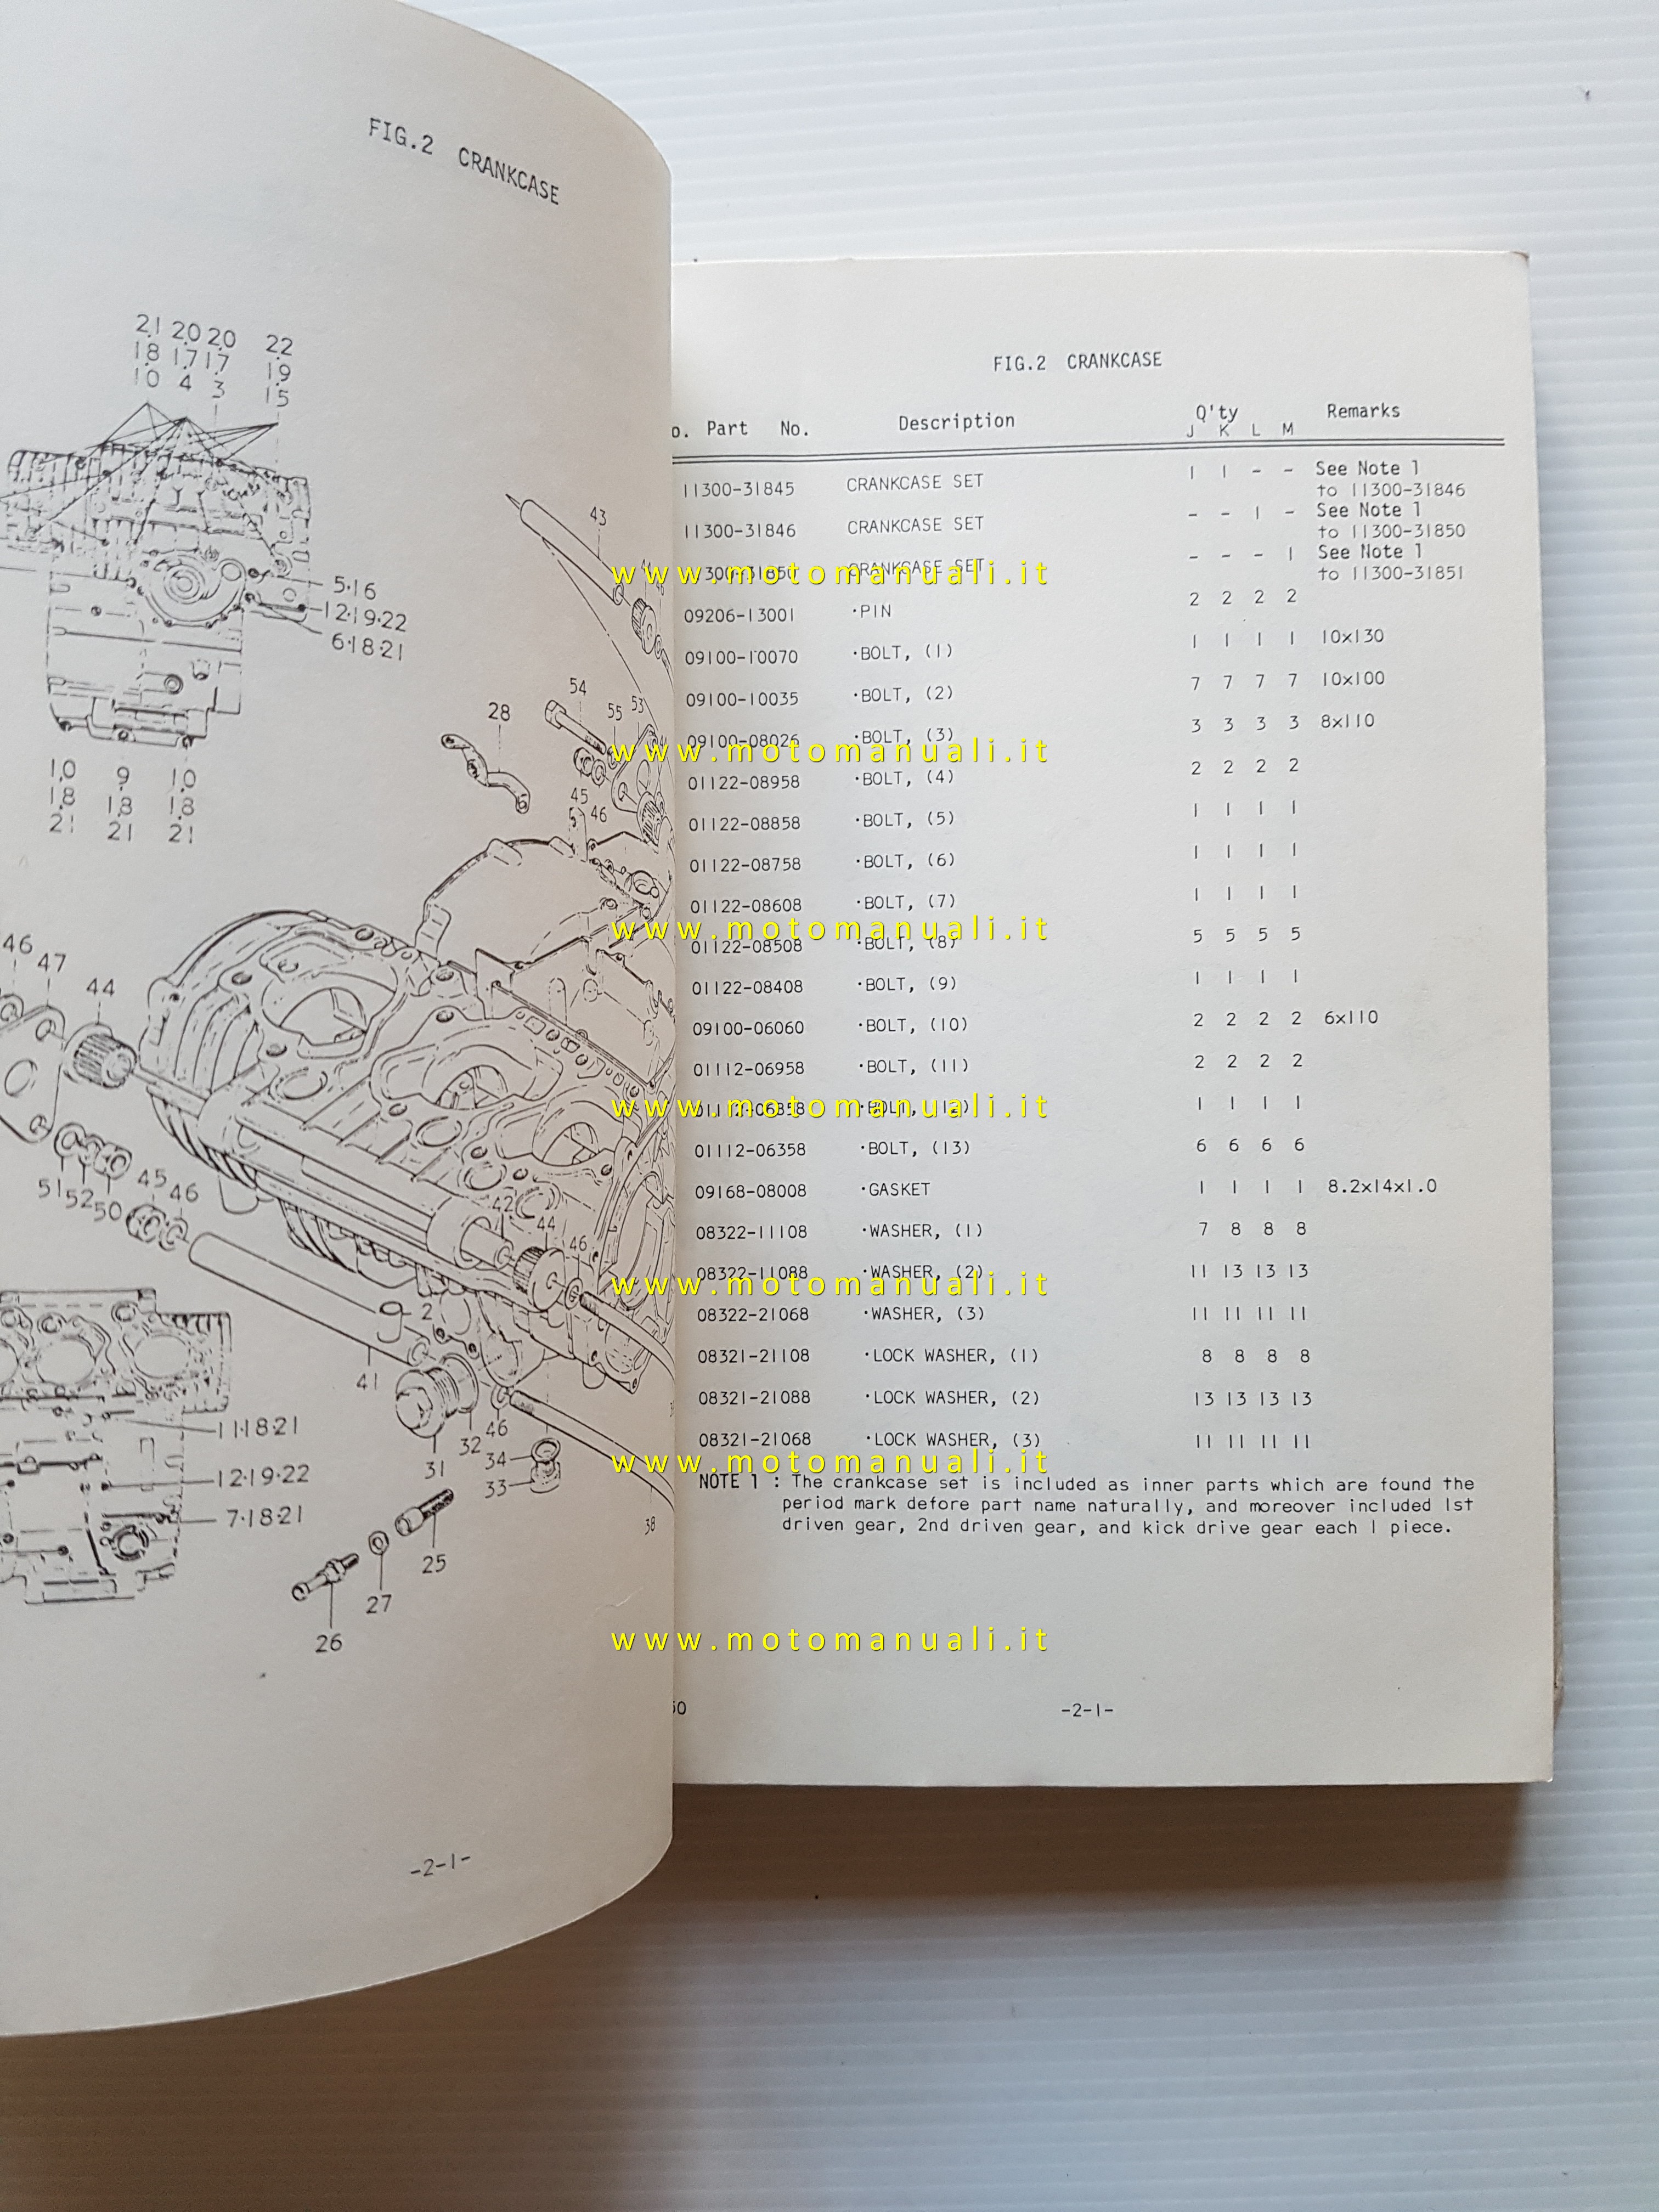 FIG.2 CRANKCASE
21 20 20 22
18 17 17 19
10 4 3 15
5·16
12·19·22
6·18·21
10 9 10
18 18 18
21 21 21
43
54
55
53
28
45
46
46
47
44
51
52
50
45
46
42
44
46
2
41
31
32
46
34
33
38
25
27
26
11·18·21
12·19·22
7·18·21
-2-1-
FIG.2 CRANKCASE
Part No. Description Q'ty Remarks
J K L M
11300-31845 CRANKCASE SET 1 1 - - See Note 1
to 11300-31846
11300-31846 CRANKCASE SET - - 1 - See Note 1
to 11300-31850
300-31850 CRANKCASE SET - - - 1 See Note 1
to 11300-31851
09206-13001 ·PIN 2 2 2 2
09100-10070 ·BOLT, (1) 1 1 1 1 10x130
09100-10035 ·BOLT, (2) 7 7 7 7 10x100
09100-08026 ·BOLT, (3) 3 3 3 3 8x110
01122-08958 ·BOLT, (4) 2 2 2 2
01122-08858 ·BOLT, (5) 1 1 1 1
01122-08758 ·BOLT, (6) 1 1 1 1
01122-08608 ·BOLT, (7) 1 1 1 1
01122-08508 ·BOLT, (8) 5 5 5 5
01122-08408 ·BOLT, (9) 1 1 1 1
09100-06060 ·BOLT, (10) 2 2 2 2 6x110
01112-06958 ·BOLT, (11) 2 2 2 2
·BOLT, 1 1 1 1
01112-06358 ·BOLT, (13) 6 6 6 6
09168-08008 ·GASKET 1 1 1 1 8.2x14x1.0
08322-11108 ·WASHER, (1) 7 8 8 8
08322-11088 ·WASHER, (2) 11 13 13 13
08322-21068 ·WASHER, (3) 11 11 11 11
08321-21108 ·LOCK WASHER, (1) 8 8 8 8
08321-21088 ·LOCK WASHER, (2) 13 13 13 13
08321-21068 ·LOCK WASHER, (3) 11 11 11 11
NOTE 1 : The crankcase set is included as inner parts which are found the
period mark defore part name naturally, and moreover included 1st
driven gear, 2nd driven gear, and kick drive gear each 1 piece.
-2-1-
www.motomanuali.it
www.motomanuali.it
www.motomanuali.it
www.motomanuali.it
www.motomanuali.it
www.motomanuali.it
www.motomanuali.it